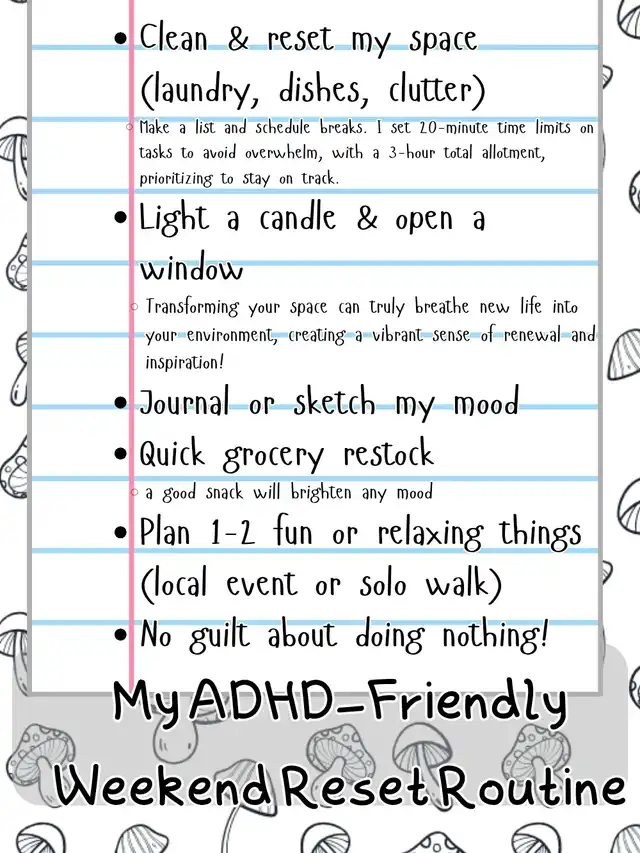 • Clean & reset my space
(laundry, dishes, clutter)
○ Make a list and schedule breaks. I set 20-minute time limits on
tasks to avoid overwhelm, with a 3-hour total allotment,
prioritizing to stay on track.
• Light a candle & open a
window
○ Transforming your space can truly breathe new life into
your environment, creating a vibrant sense of renewal and
inspiration!
• Journal or sketch my mood
• Quick grocery restock
○ a good snack will brighten any mood
• Plan 1-2 fun or relaxing things
(local event or solo walk)
• No guilt about doing nothing!
My ADHD-Friendly
Weekend Reset Routine